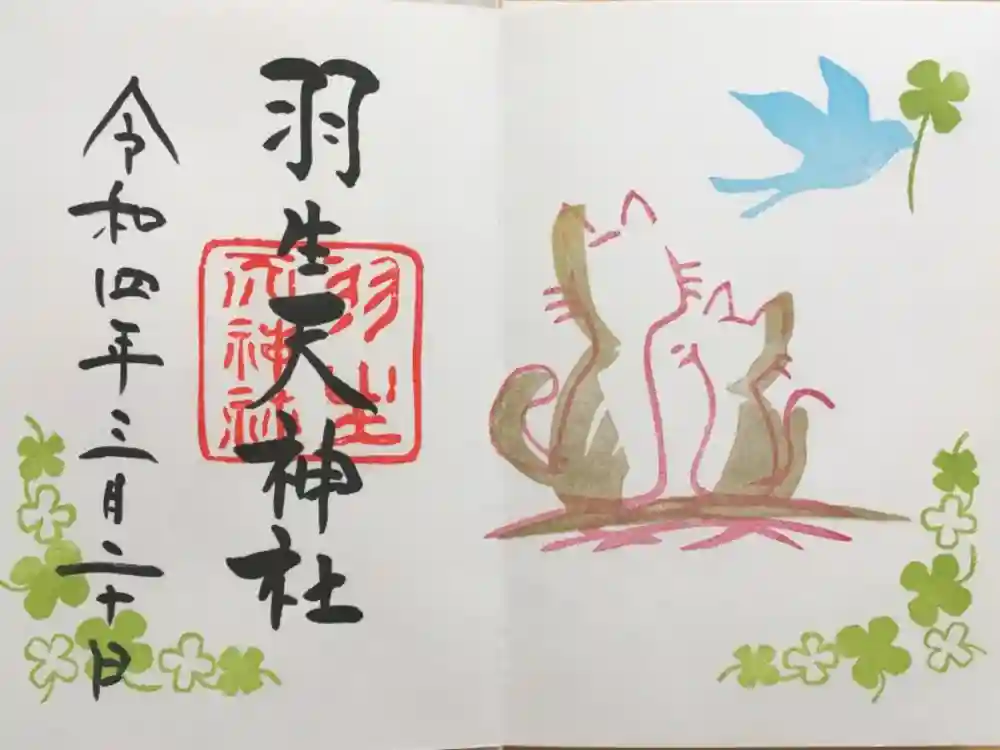 羽生天神社
令和四年三月二十日
羽生
天神社